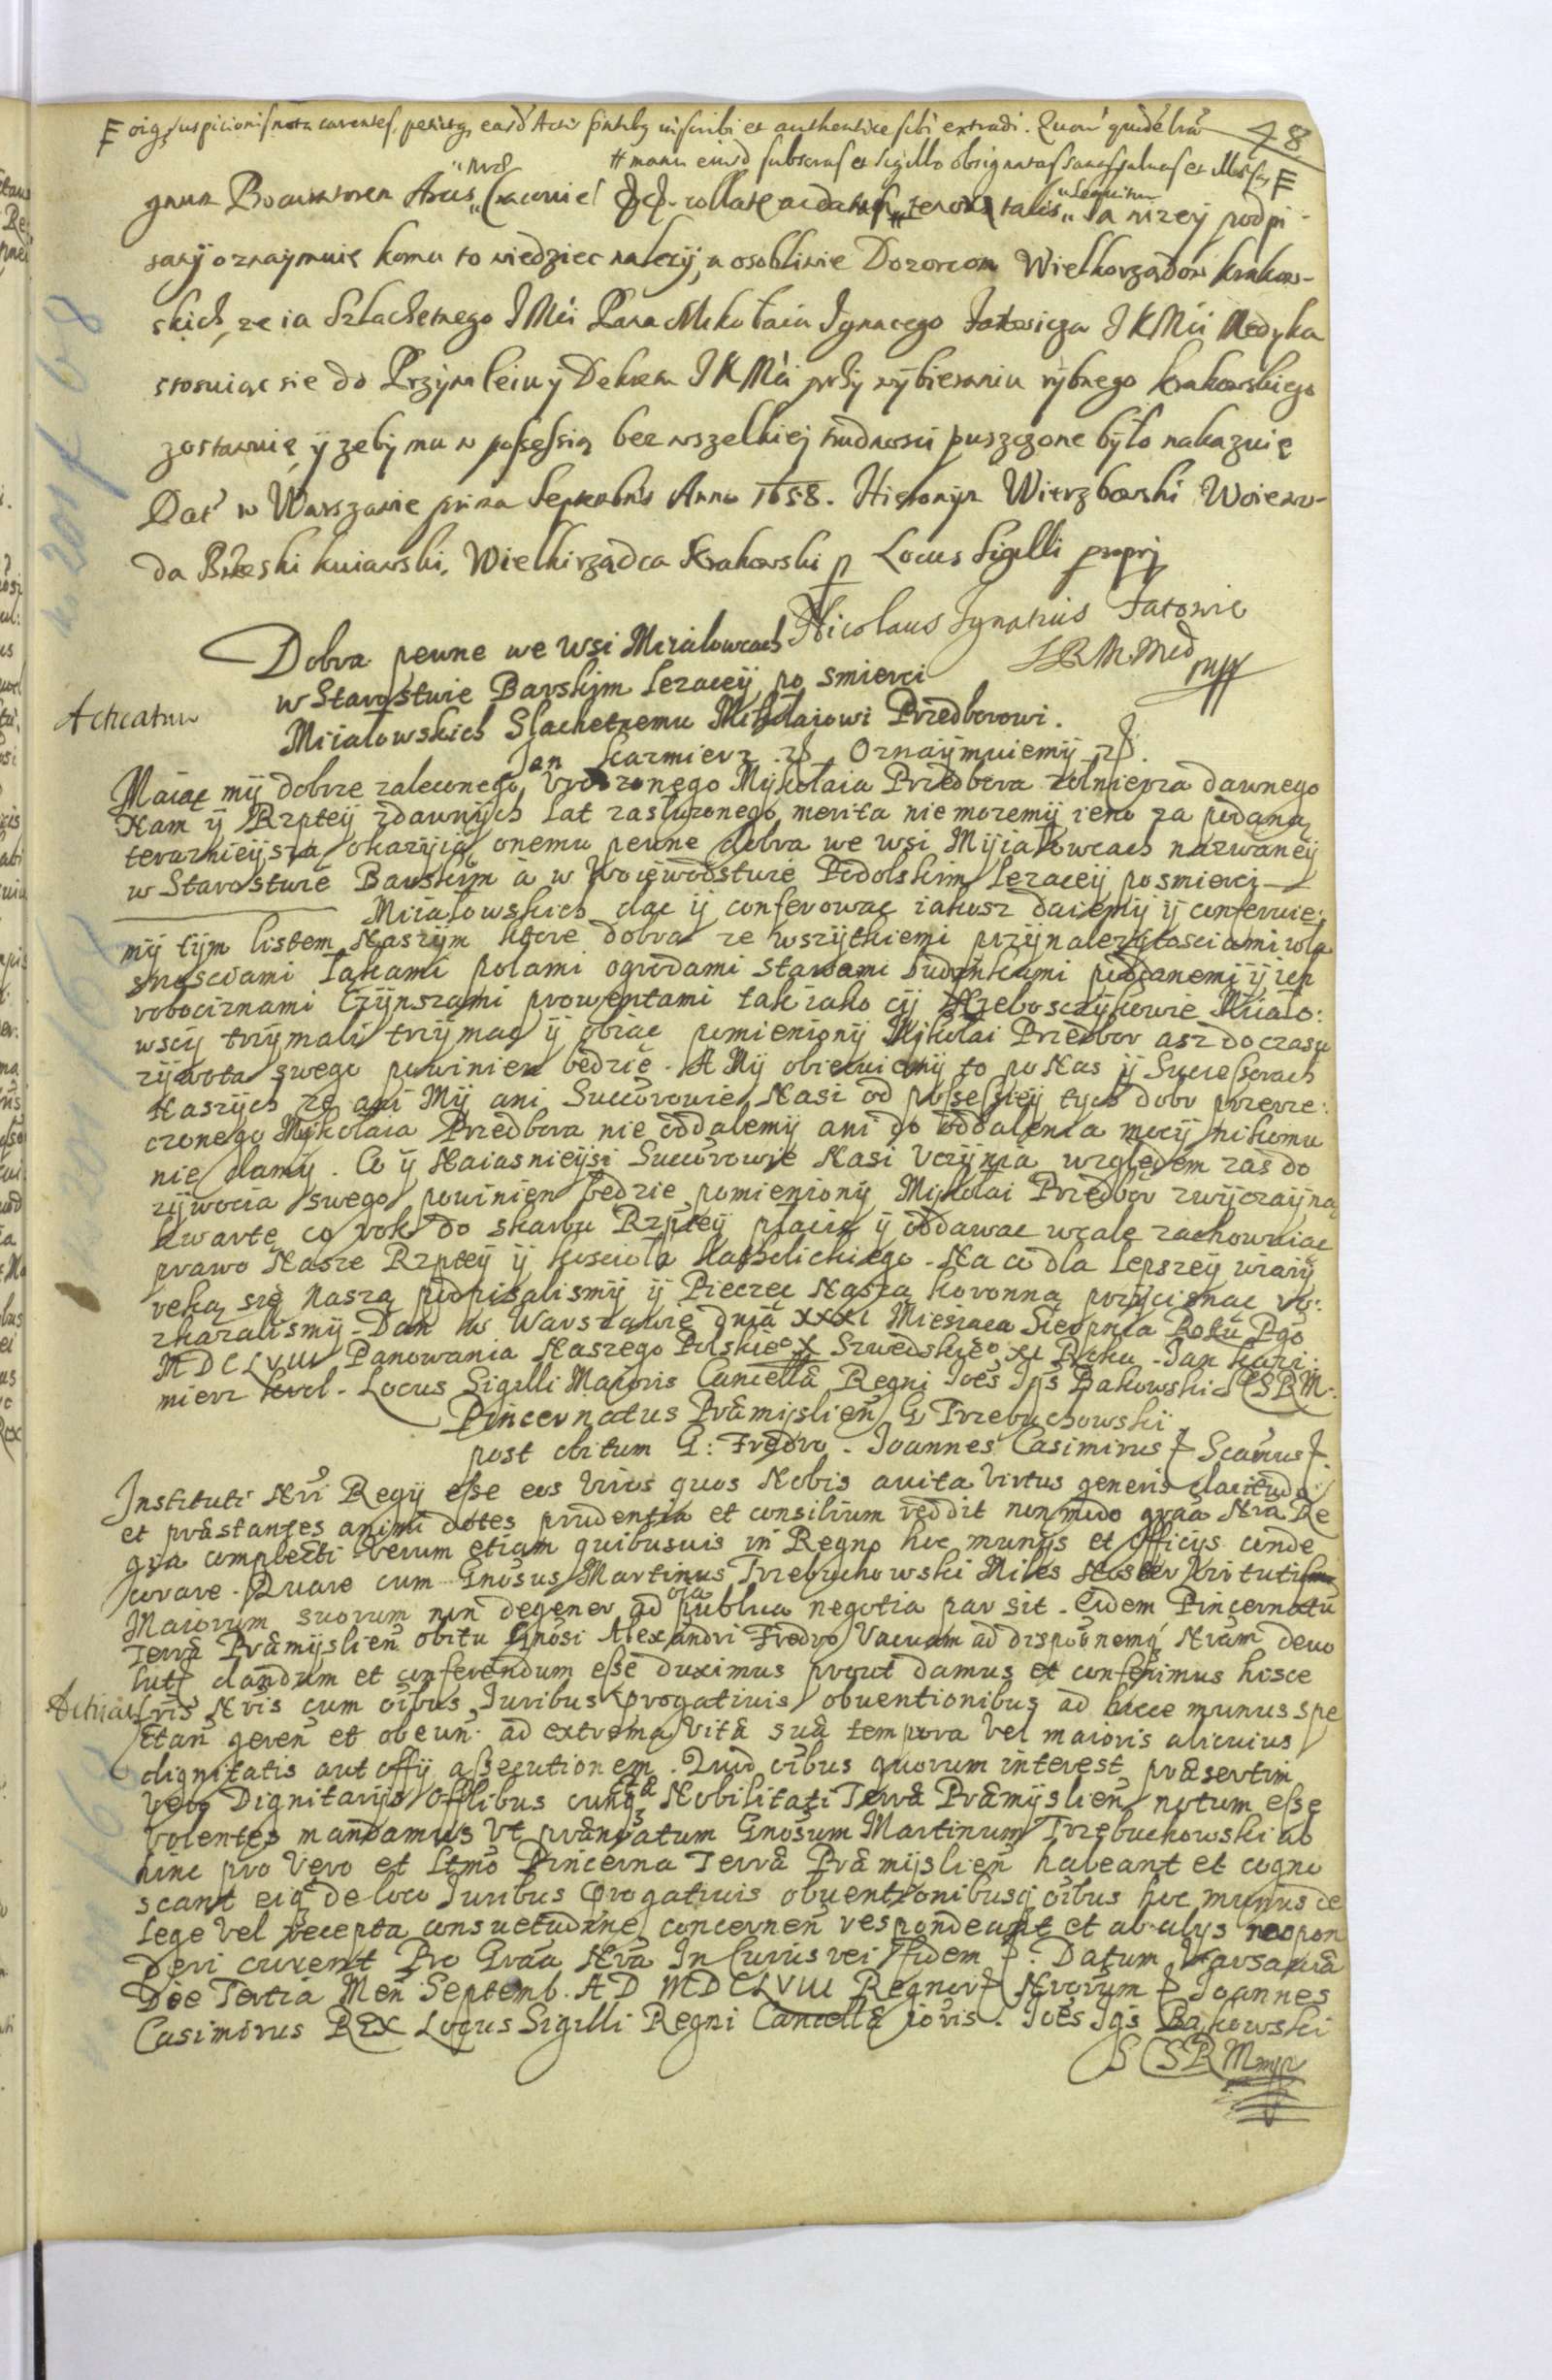 48
oīq suspicionis nota carentes, petiitq easd Actis pntibq inscribi et authentice sibi extradi. Quarū quidē lrārū
manu eiusd subscrās et sigillo obsignatas sanas salvas et illaesas
gnum Procuratorem Arcis Cracovieñ collate ac datae tenor talis sequitur Ja nizey podpi-
sanÿ oznaÿmuię komu to wiedziec nalezÿ, a osobliwie Dozorcom Wielkorządow krakow-
skich, ze ia Szlachetnego JMći Pana Mikołaia Jgnacego Fatowicza JKMći Medyka
stosuiąc sie do Przÿwileiu ÿ Dekretu JKMći przÿ wÿbieraniu rÿbnego krakowskiego
zostawuię, ÿ zebÿ mu w possessią bez wszelkiej trudnosci puszczone bÿło nakazuię
Dat w Warszawie prima Septembris Anno 1658. Hieronÿm Wierzbowski Woiewo-
da Brzeski kuiawski, Wielkirządca Krakowski Locus Sigilli proprÿ
Nicolaus Jgnatius Fatowic
SRM Med
mpp
Dobra pewne we wsi Miziałowcach
w Starostwie Barskim lezącÿ po smierci
Acticatum
Miiałowskich Slachetnemu Mikołajowi Przedborowi.
Jan Kazmierz Oznaÿmuiemÿ
Maiąc mÿ dobrze zaleconego Vrodzonego Mÿkołaia Przedbora zołnierza dawnego
Nam ÿ Rzptey zdawnÿch lat zasłuzonego merita nie mozemÿ ieno za podaną
teraznieÿszą okazÿią onemu pewne dobra we wsi Mÿiałowcach nazwaneÿ
w Starostwie Barskim a w Woiewodstwie Podolskim lezaceÿ po smierci
Miiałowskich dac ÿ conferowac iakosz daiemÿ ÿ conferuie-
mÿ tÿm listem Naszÿm ktore dobra ze wszÿtkiemi przÿnaleznosciami wła
snosciami łąkami polami ogrodami stawami budÿnkami poddanemi ÿ ich
robociznami Czÿnszami prowentami tak iako cÿ Nieboszczÿkowie Miiało:
wscÿ trzÿmali trzÿmac ÿ obiąc pomienionÿ Mikołai Przedbor asz do czasu
zÿwota swego powinien bedzie. A Mÿ obiecuiemÿ to po Nas ÿ Successorach
Naszÿch ze ani Mÿ ani Succorowie Nasi od possessieÿ tych dobr przerze:
czonego Mÿkołaia Przedbora nie oddalemÿ ani do oddalenia mocÿ nikomu
nie damÿ. Co ÿ Naiasnieÿsi Succorowie Nasi Vczÿnią względem zas do
zÿwocia swego powinien bedzie pomienionÿ Mikołai Przedbor zwÿczaÿną
kwartę co rok do skarbu Rzptey płacic ÿ oddawac wcale zachowuiąc
prawo Nasze Rzptey ÿ kosciola Katholickiego. Na co dla lepszeÿ wiarÿ
ręką się naszą podpisalismÿ ÿ Pieczęc Naszą koronną przÿcisnąc ro:
zkazalismÿ. Dan w Warszawie dniā xxxi Miesiąca Sierpnia Roku Pgo
MDCLVIII Panowania Naszego Polskiego X Szwedskiego XI Roku. Jan Kazi:
mierz krol. Locus Sigilli Maioris Cancellæ Regni Joēs Jgs Bąkowski SRM.
Pincernatus Præmÿslieñ G Trzebuchowski
post obitum G: Fredro. Joannes Casimirus
Jnstituti Nri Regÿ esse eos viros quos Nobis auita virtus generis claritudo
et præstantes animi dotes prudentia et consilium reddit non modo graa Nra Re
gia complecti verum etiam quibusuis in Regno hoc munÿs et officÿs conde
corare. Quare cum Gnosus Martinus Trzebuchowski Miles Noster virtuti
Maiorum suorum non degener ad oīa publica negotia par sit. Eidem Pincernatū
Terræ Præmÿslieñ obitu Gnosi Alexandri Fredro Vacuam ad dispoōnemq Nram devo
lutū dandum et conferendum esse duximus prout damus et conferimus hisce
Acticat
lris Nris cum oībus Juribus progatiuis obuentionibus ad hocce munus spe
ctañ gereñ et obeuñ ad extrema vitæ suæ tempora vel maioris alicuius
dignitatis aut offÿ assecutionem. Quod oībus quorum interest præsertim
vero Dignitarÿs Offlibus cunctæq Nobilitati Terræ Præmÿslieñ notum esse
volentes mandamus vt prænoātum Gnosum Martinum Trzebuchowski ab
hinc pro vero et ltmo Pincerna Terræ Præmÿslieñ habeant et cogno
scant eiq de loco Juribus progatiuis obuentionibusq oībus hoc munus de
lege vel recepta consuetudine concerneñ respondeant et ab alÿs respon
deri curent Pro Graa Nra Jn Cuius rei fidem. Datum Varsaviæ
Die Tertia Meñ Septemb. AD MDCLVIII Regnor Nrorum Joannes
Casimirus REX Locus Sigilli Regni Cancellæ ioris. Joēs Jgs Bąkowski
SRM mpp